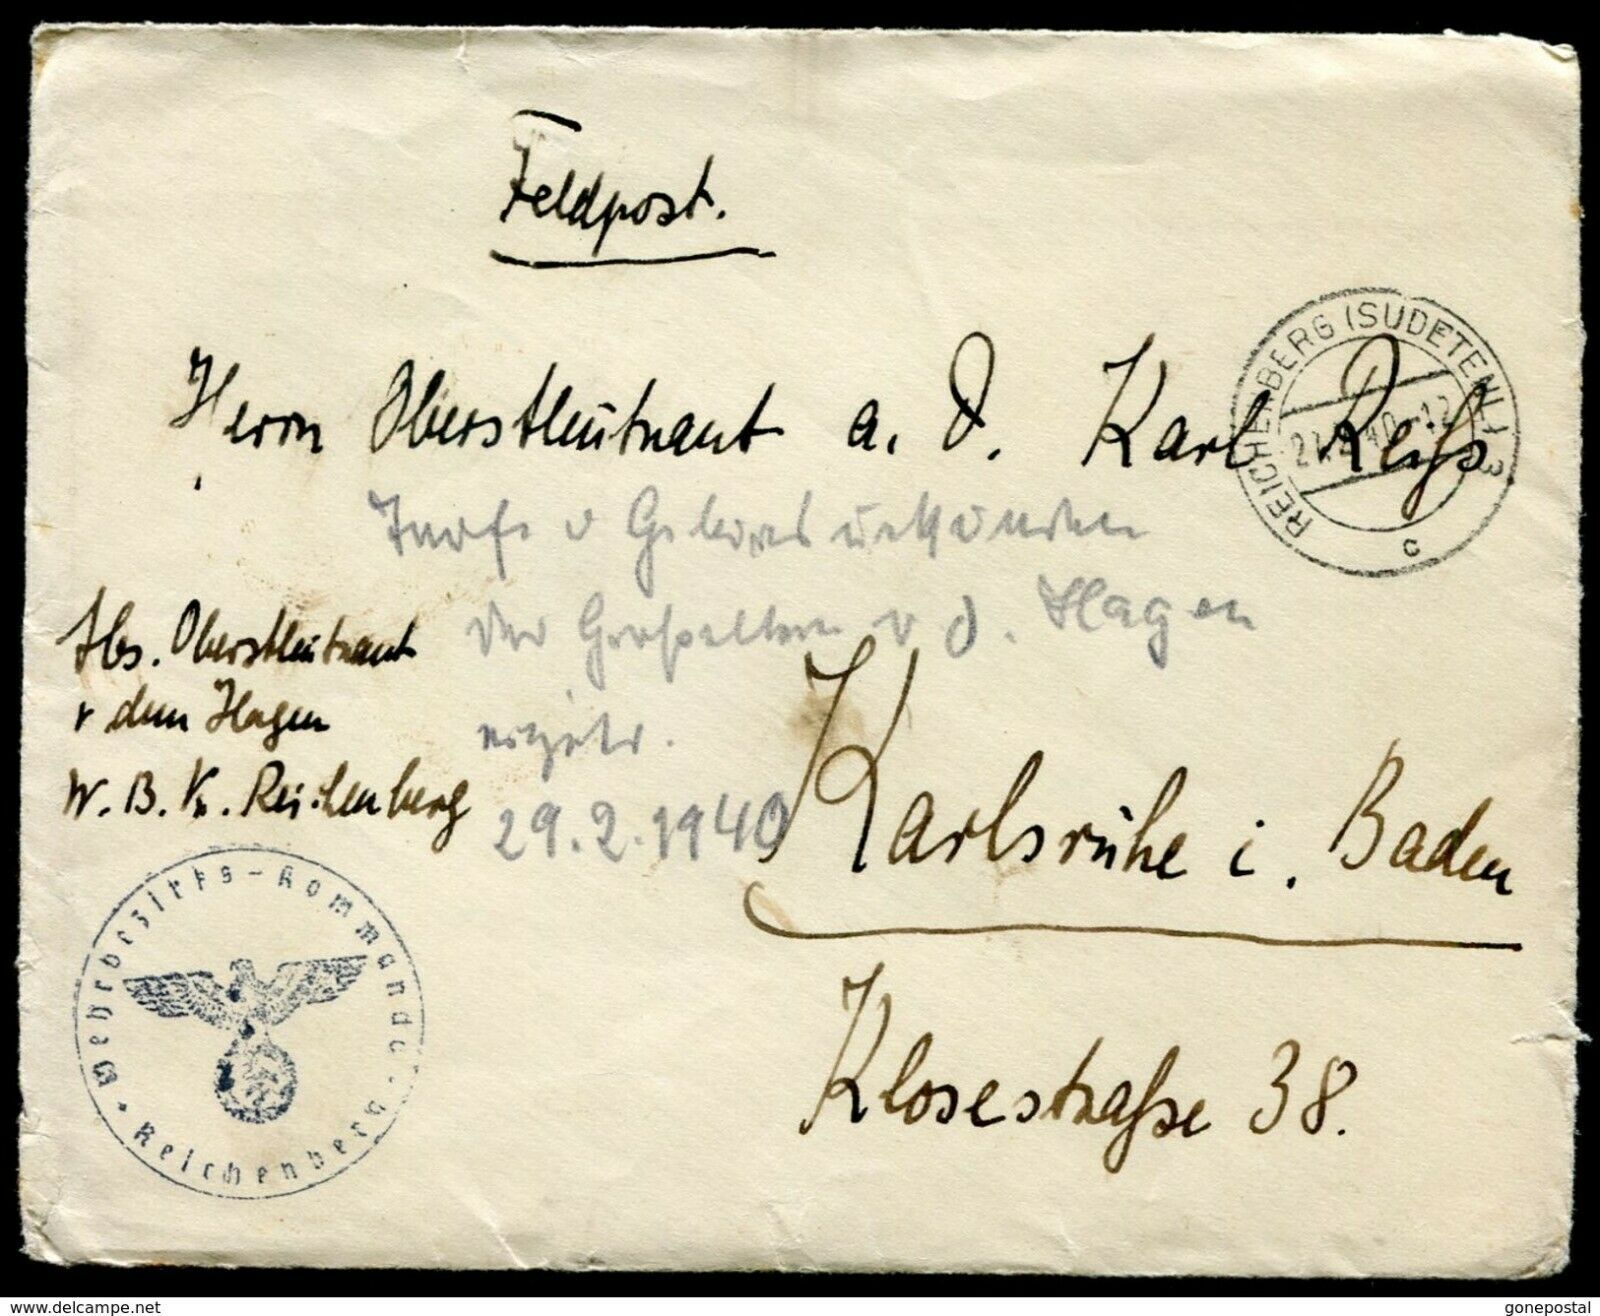 Feldpost.
REICHENBERG (SUDETENL) 3
40.-12
c
Herrn Oberstleutnant a. D. Karl Reiß
v Geburtsurkunden
der Großeltern v d. Hagen
Abs. Oberstleutnant
v dem Hagen
W. B. K. Reichenberg
29.2.1940
Karlsruhe i. Baden
Klosestraße 38.
Wehrbezirks-Kommando
Reichenberg
www.delcampe.net
gonepostal